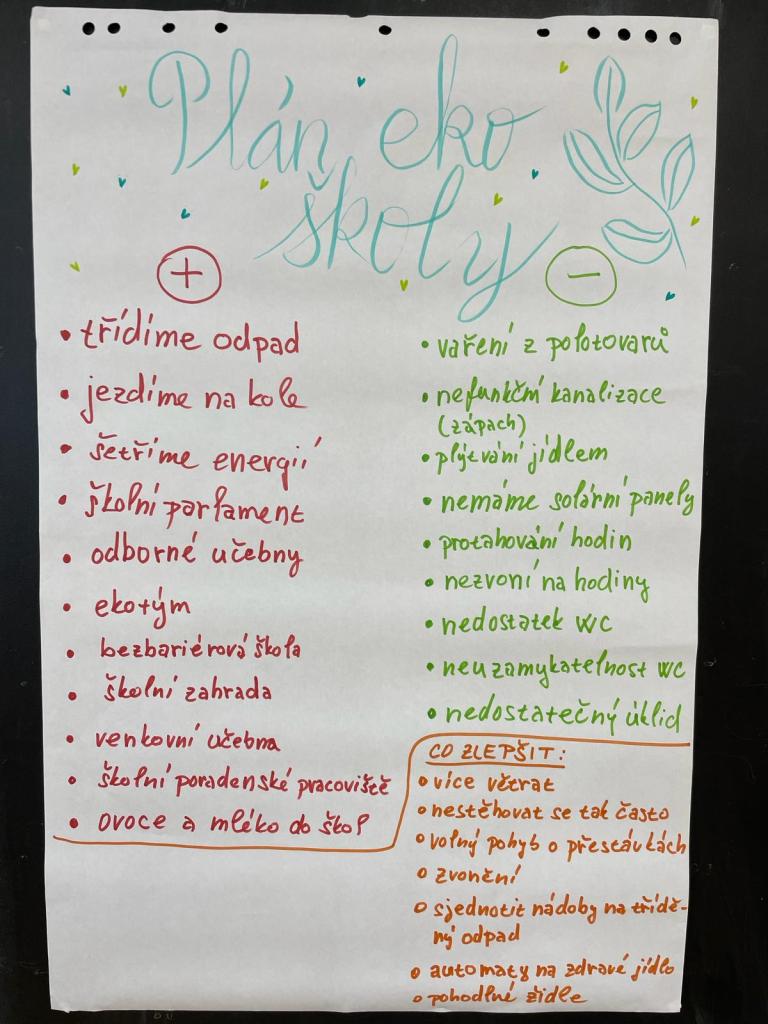 Plán eko
školy
+
• třídíme odpad
• jezdíme na kole
• šetříme energií
• školní parlament
• odborné učebny
• ekotým
• bezbariérová škola
• školní zahrada
• venkovní učebna
• školní poradenské pracoviště
• ovoce a mléko do škol
−
• vaření z polotovarů
• nefunkční kanalizace
(zápach)
• plýtvání jídlem
• nemáme solární panely
• protahování hodin
• nezvoní na hodiny
• nedostatek WC
• neuzamykatelnost WC
• nedostatečný úklid
CO ZLEPŠIT:
• více větrat
• nestěhovat se tak často
• volný pohyb o přestávkách
• zvonění
• sjednotit nádoby na třídě-
ný odpad
• automaty na zdravé jídlo
• pohodlné židle